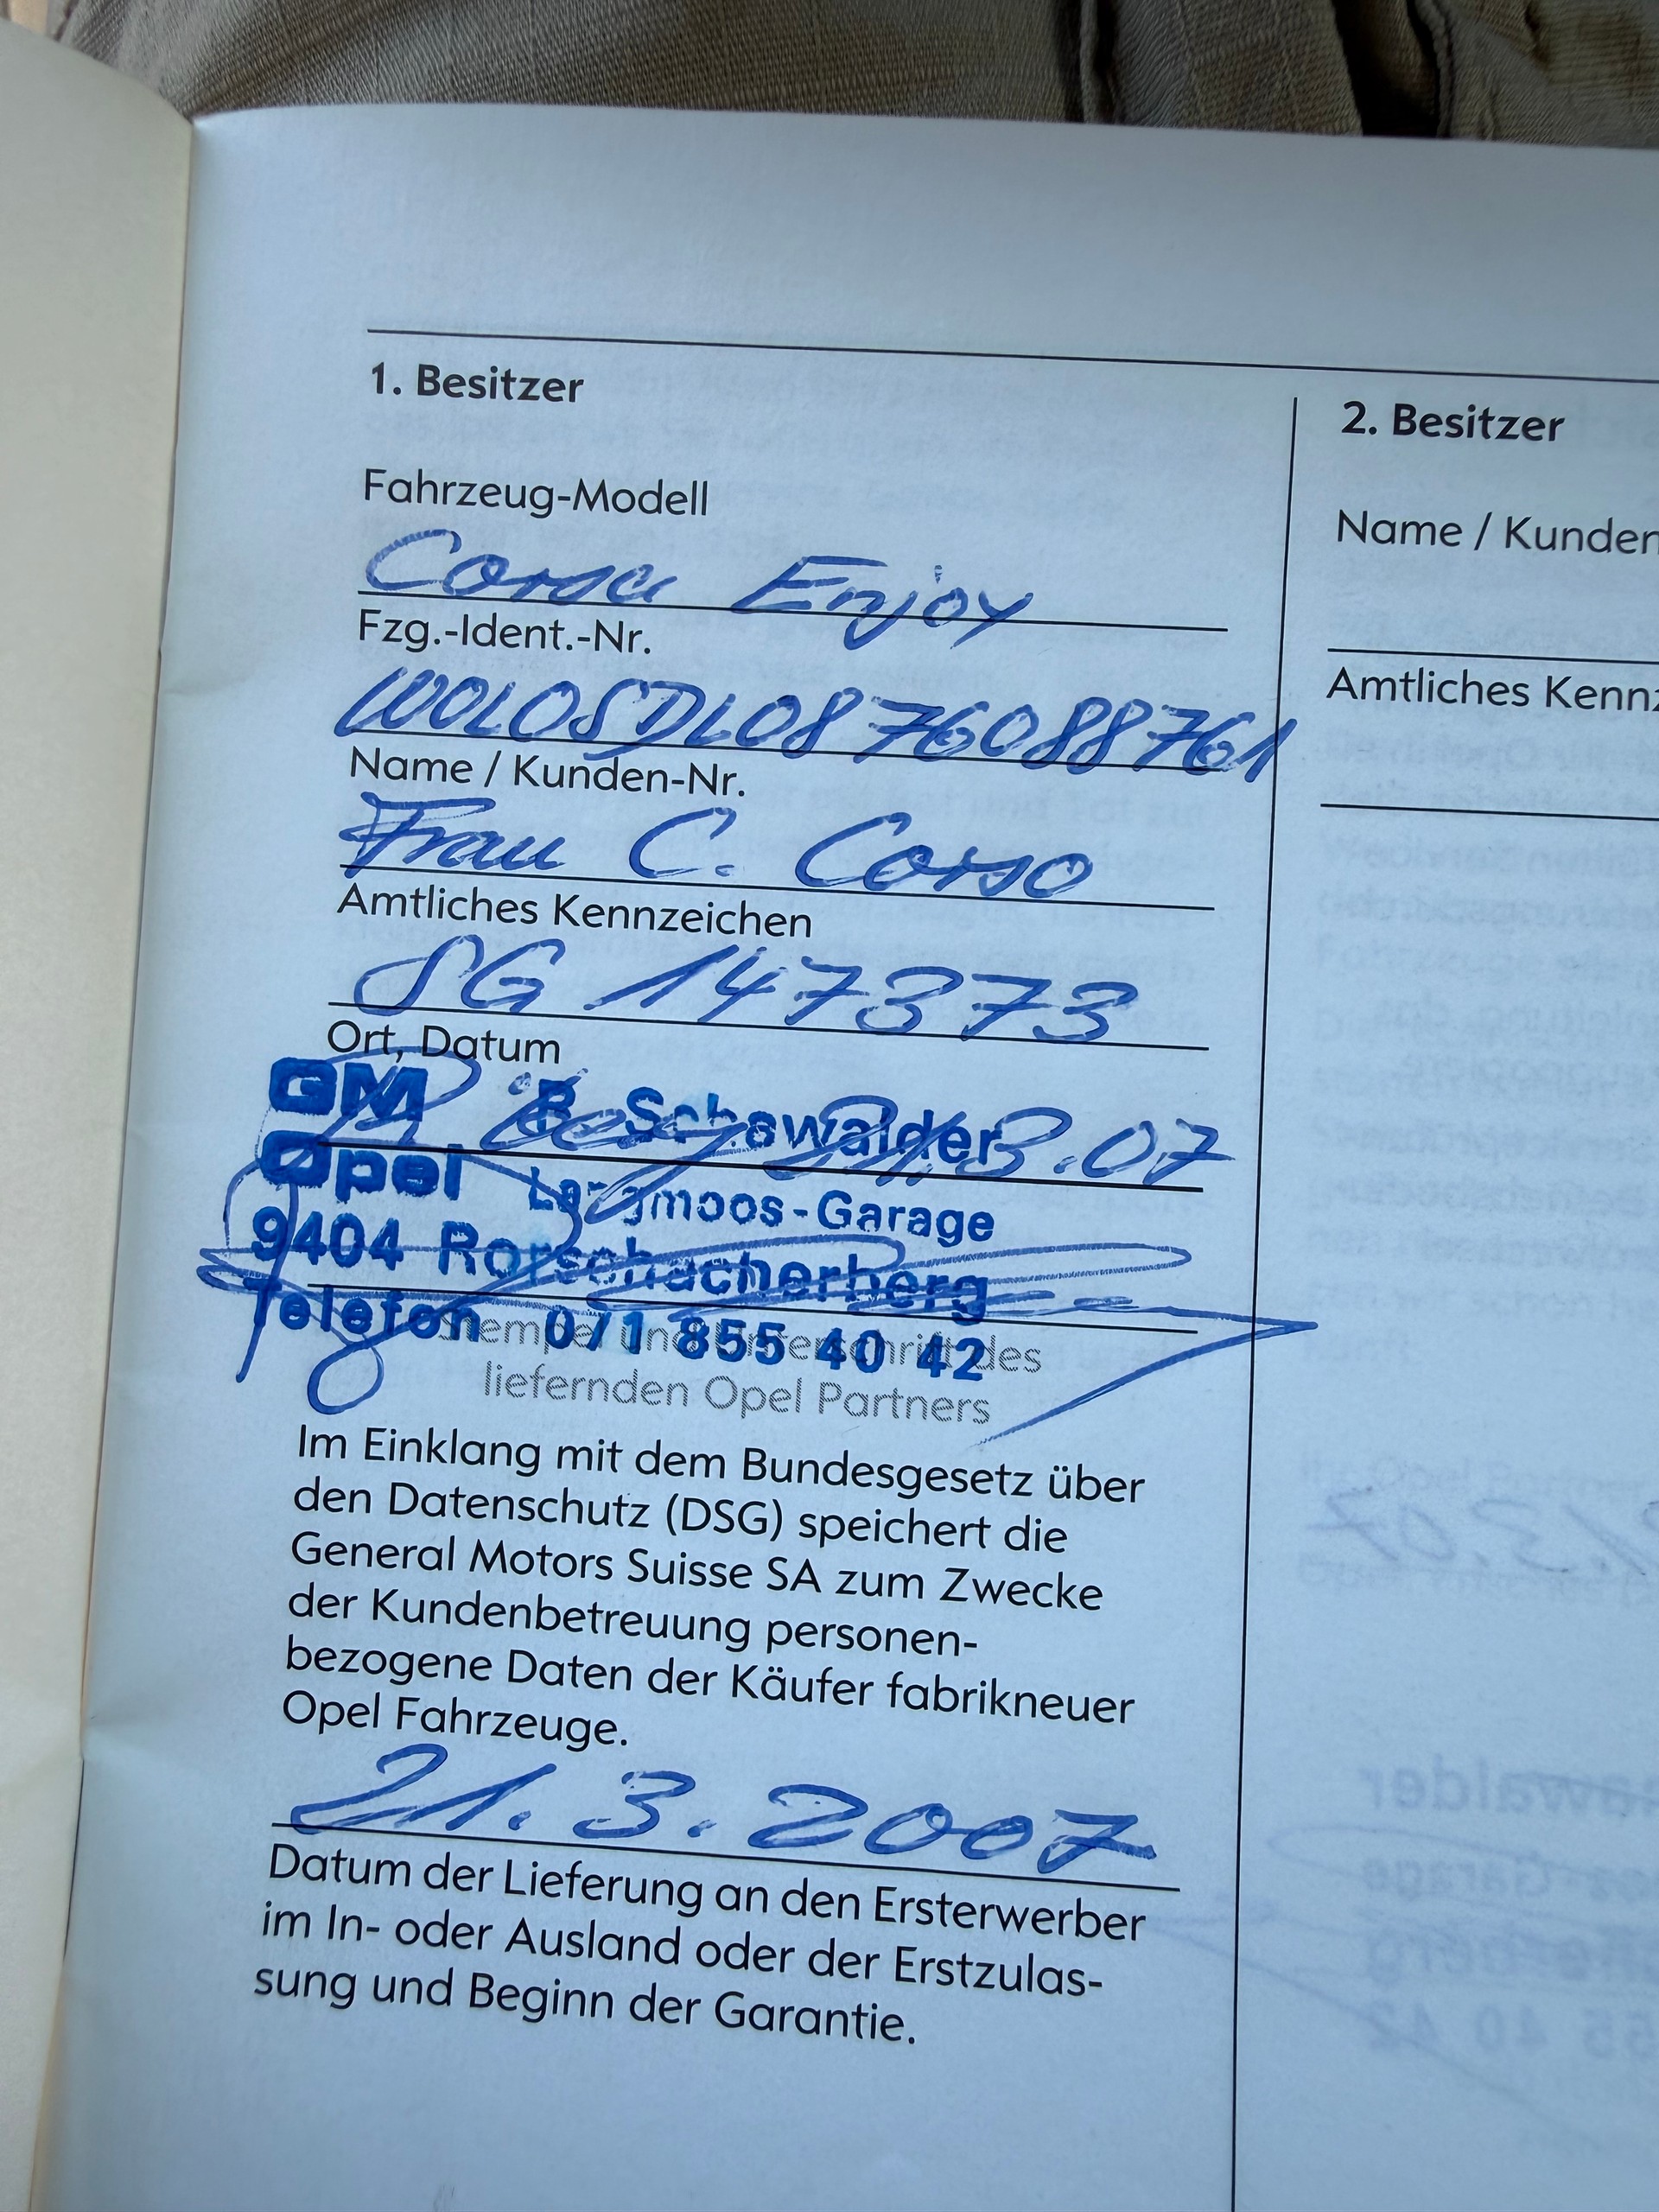 1. Besitzer
Fahrzeug-Modell
Corsa Enjoy
Fzg.-Ident.-Nr.
W0L0SDL0876088761
Name / Kunden-Nr.
Frau C. Corso
Amtliches Kennzeichen
SG 147373
Ort, Datum
GM B. Schawalder
21.3.07
Opel Langmoos-Garage
9404 Rorschacherberg
Telefon 071 855 40 42
Stempel und Unterschrift des
liefernden Opel Partners
Im Einklang mit dem Bundesgesetz über
den Datenschutz (DSG) speichert die
General Motors Suisse SA zum Zwecke
der Kundenbetreuung personen-
bezogene Daten der Käufer fabrikneuer
Opel Fahrzeuge.
21.3.2007
Datum der Lieferung an den Ersterwerber
im In- oder Ausland oder der Erstzulas-
sung und Beginn der Garantie.
2. Besitzer
Name / Kunden
Amtliches Kennz